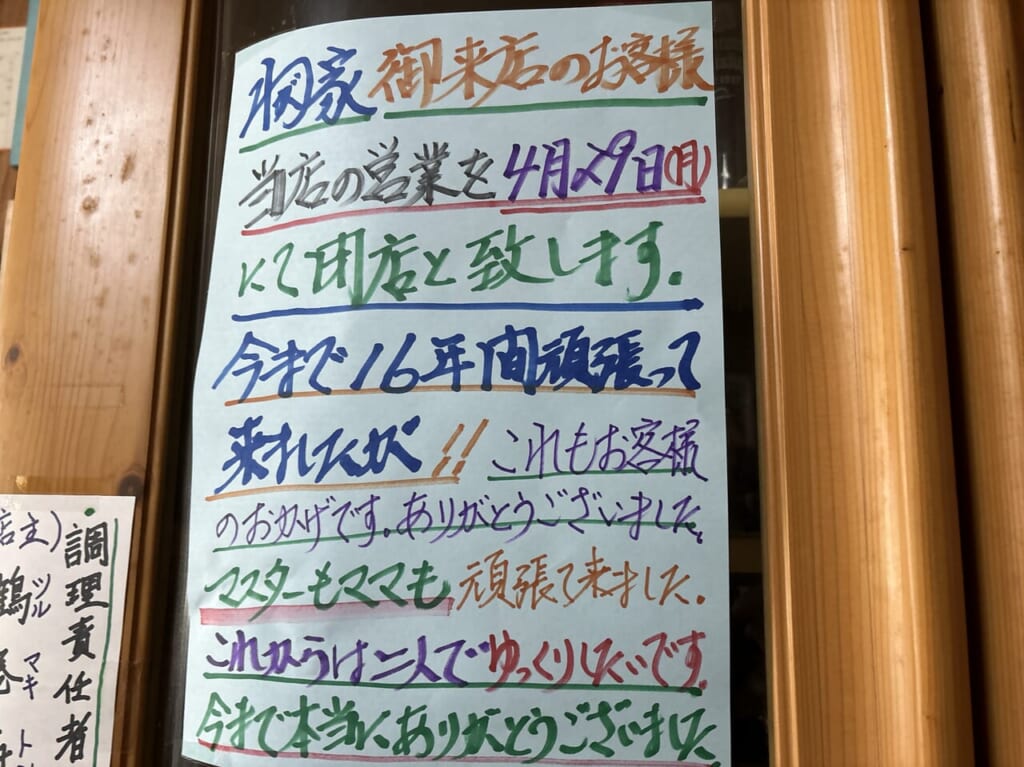 家 御来店のお客様
当店の営業を4月29日(月)
にて閉店と致します.
今まで16年間頑張って
来ましたが!! これもお客様
のおかげです.ありがとうございました.
マスターもママも,頑張て来ました.
これからは二人でゆっくりしたいです.
今まで本当に,ありがとうございました
店主)
調理責任者
鶴 ツル
巻 マキ